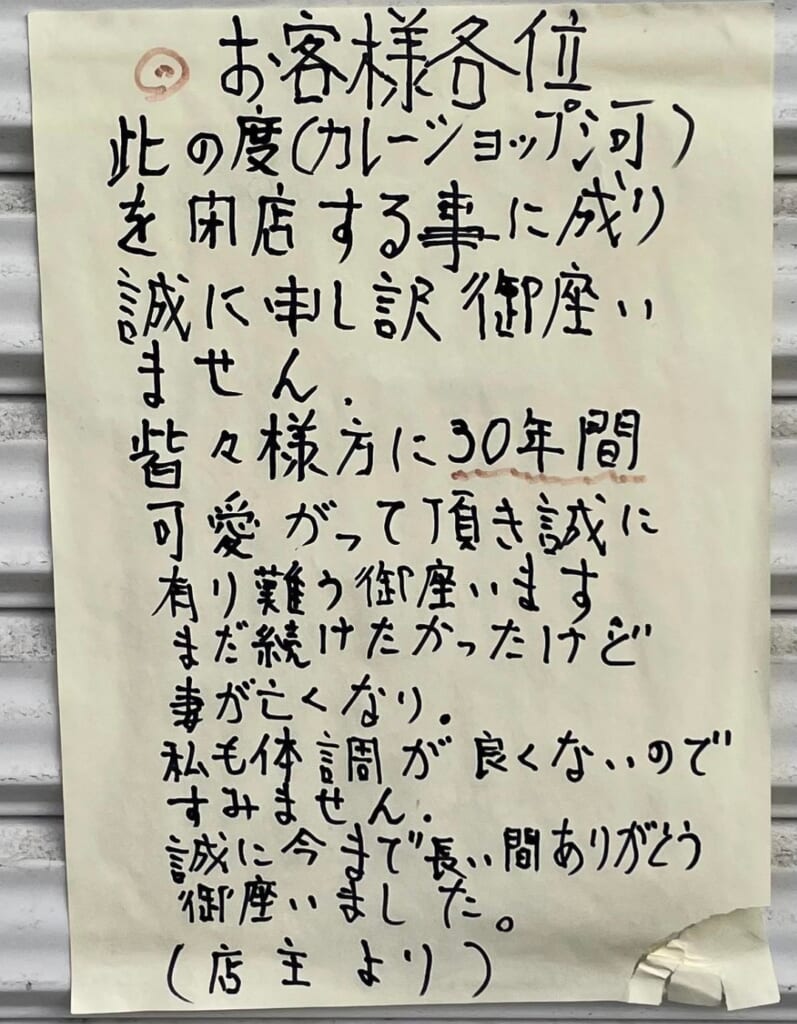 ◎ お客様各位
此の度(カレーショップ河)
を閉店する事に成り
誠に申し訳御座い
ません.
皆々様方に30年間
可愛がって頂き誠に
有り難う御座います
まだ続けたかったけど
妻が亡くなり。
私も体調が良くないので
すみません.
誠に今まで長い間ありがとう
御座いました。
(店主より)